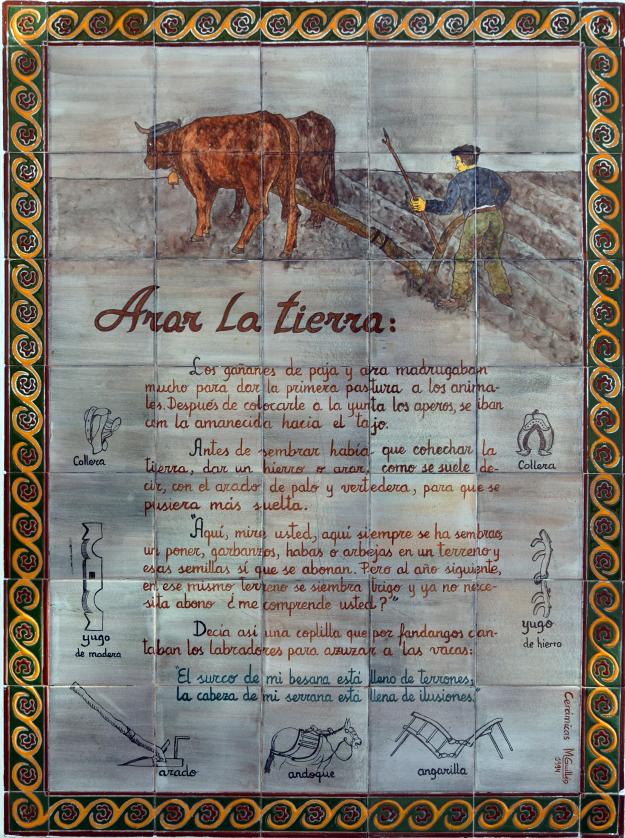 Arar la tierra:
Los gañanes de paja y ara madrugaban
mucho para dar la primera pastura a los anima-
les. Después de colocarle a la yunta los aperos, se iban
con la amanecida hacia el tajo.
Antes de sembrar había que cohechar la
tierra, dar un hierro o arar, como se suele de-
cir, con el arado de palo y vertedera, para que se
pusiera más suelta.
"Aquí, mire usted, aquí siempre se ha sembrao,
un poner, garbanzos, habas o arbejas en un terreno y
esas semillas sí que se abonan. Pero al año siguiente,
en ese mismo terreno se siembra trigo y ya no nece-
sita abono ¿me comprende usted?"
Decía así una coplilla que por fandangos can-
taban los labradores para azuzar a las vacas:
"El surco de mi besana está lleno de terrones;
la cabeza de mi serrana está llena de ilusiones."
Collera
Collera
yugo
de madera
yugo
de hierro
arado
andoque
angarilla
Cerámicas MGuillén